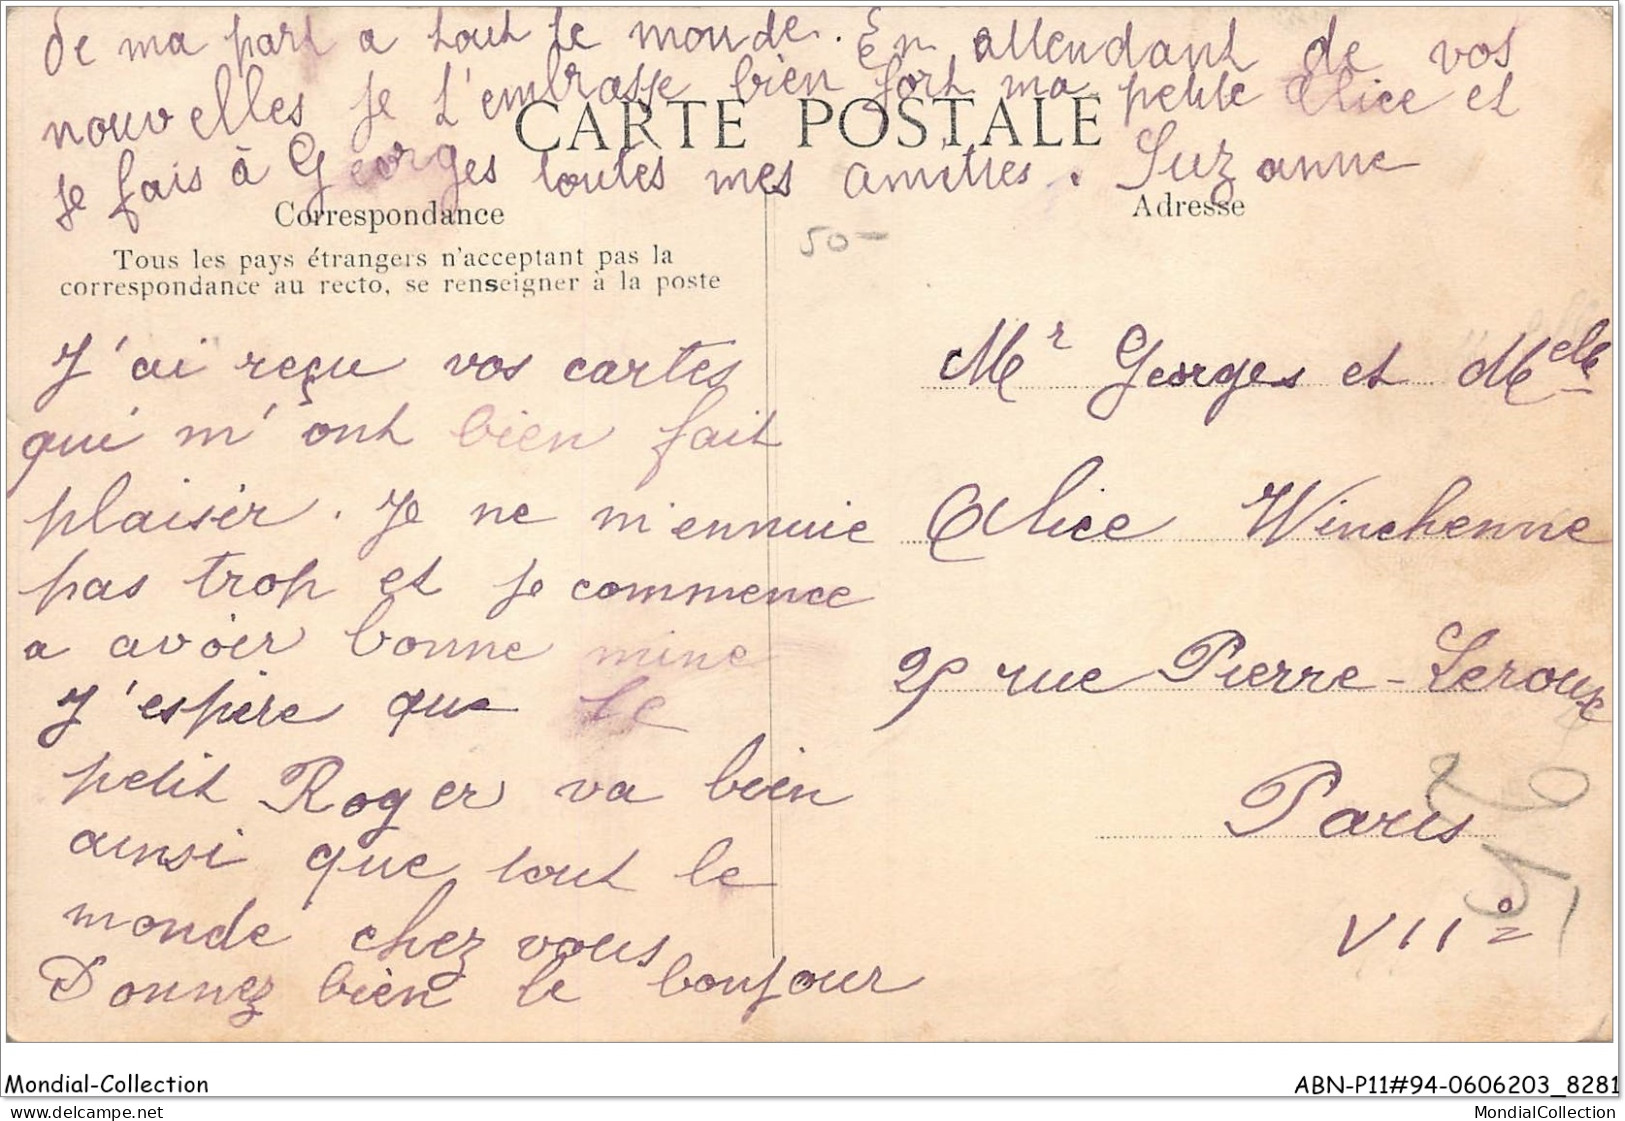 de ma part a tout le monde. En attendant de vos
nouvelles je t'embrasse bien fort ma petite Alice et
je fais à Georges toutes mes amitiés. Suzanne
CARTE POSTALE
Correspondance
Tous les pays étrangers n'acceptant pas la
correspondance au recto, se renseigner à la poste
J'ai reçu vos cartes
qui m'ont bien fait
plaisir. Je ne m'ennuie
pas trop et je commence
a avoir bonne mine
J'espère que le
petit Roger va bien
ainsi que tout le
monde chez vous
Donnez bien le bonjour
Adresse
50-
Mr Georges et Melle
Alice Winchenne
25 rue Pierre-Leroux
Paris
VIIe
Mondial-Collection
ABN-P11#94-0606203_8281
MondialCollection.delcampe.net
MondialCollection